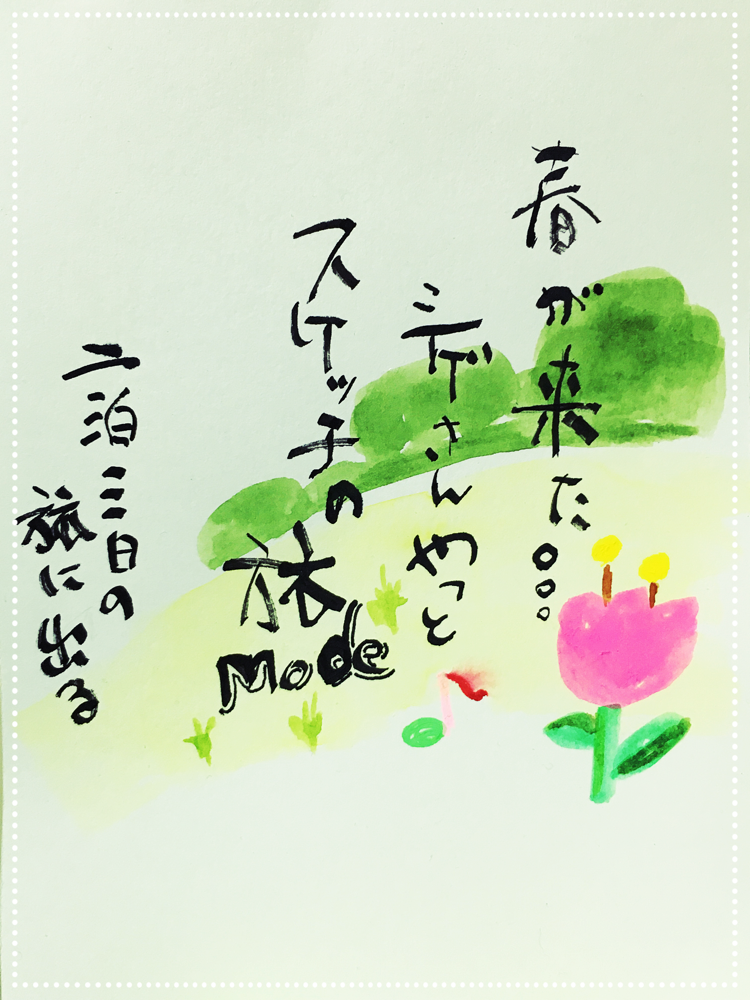 春が来た。。。
シゲさんやっと
スケッチの旅
Mode
二泊三日の
旅に出る